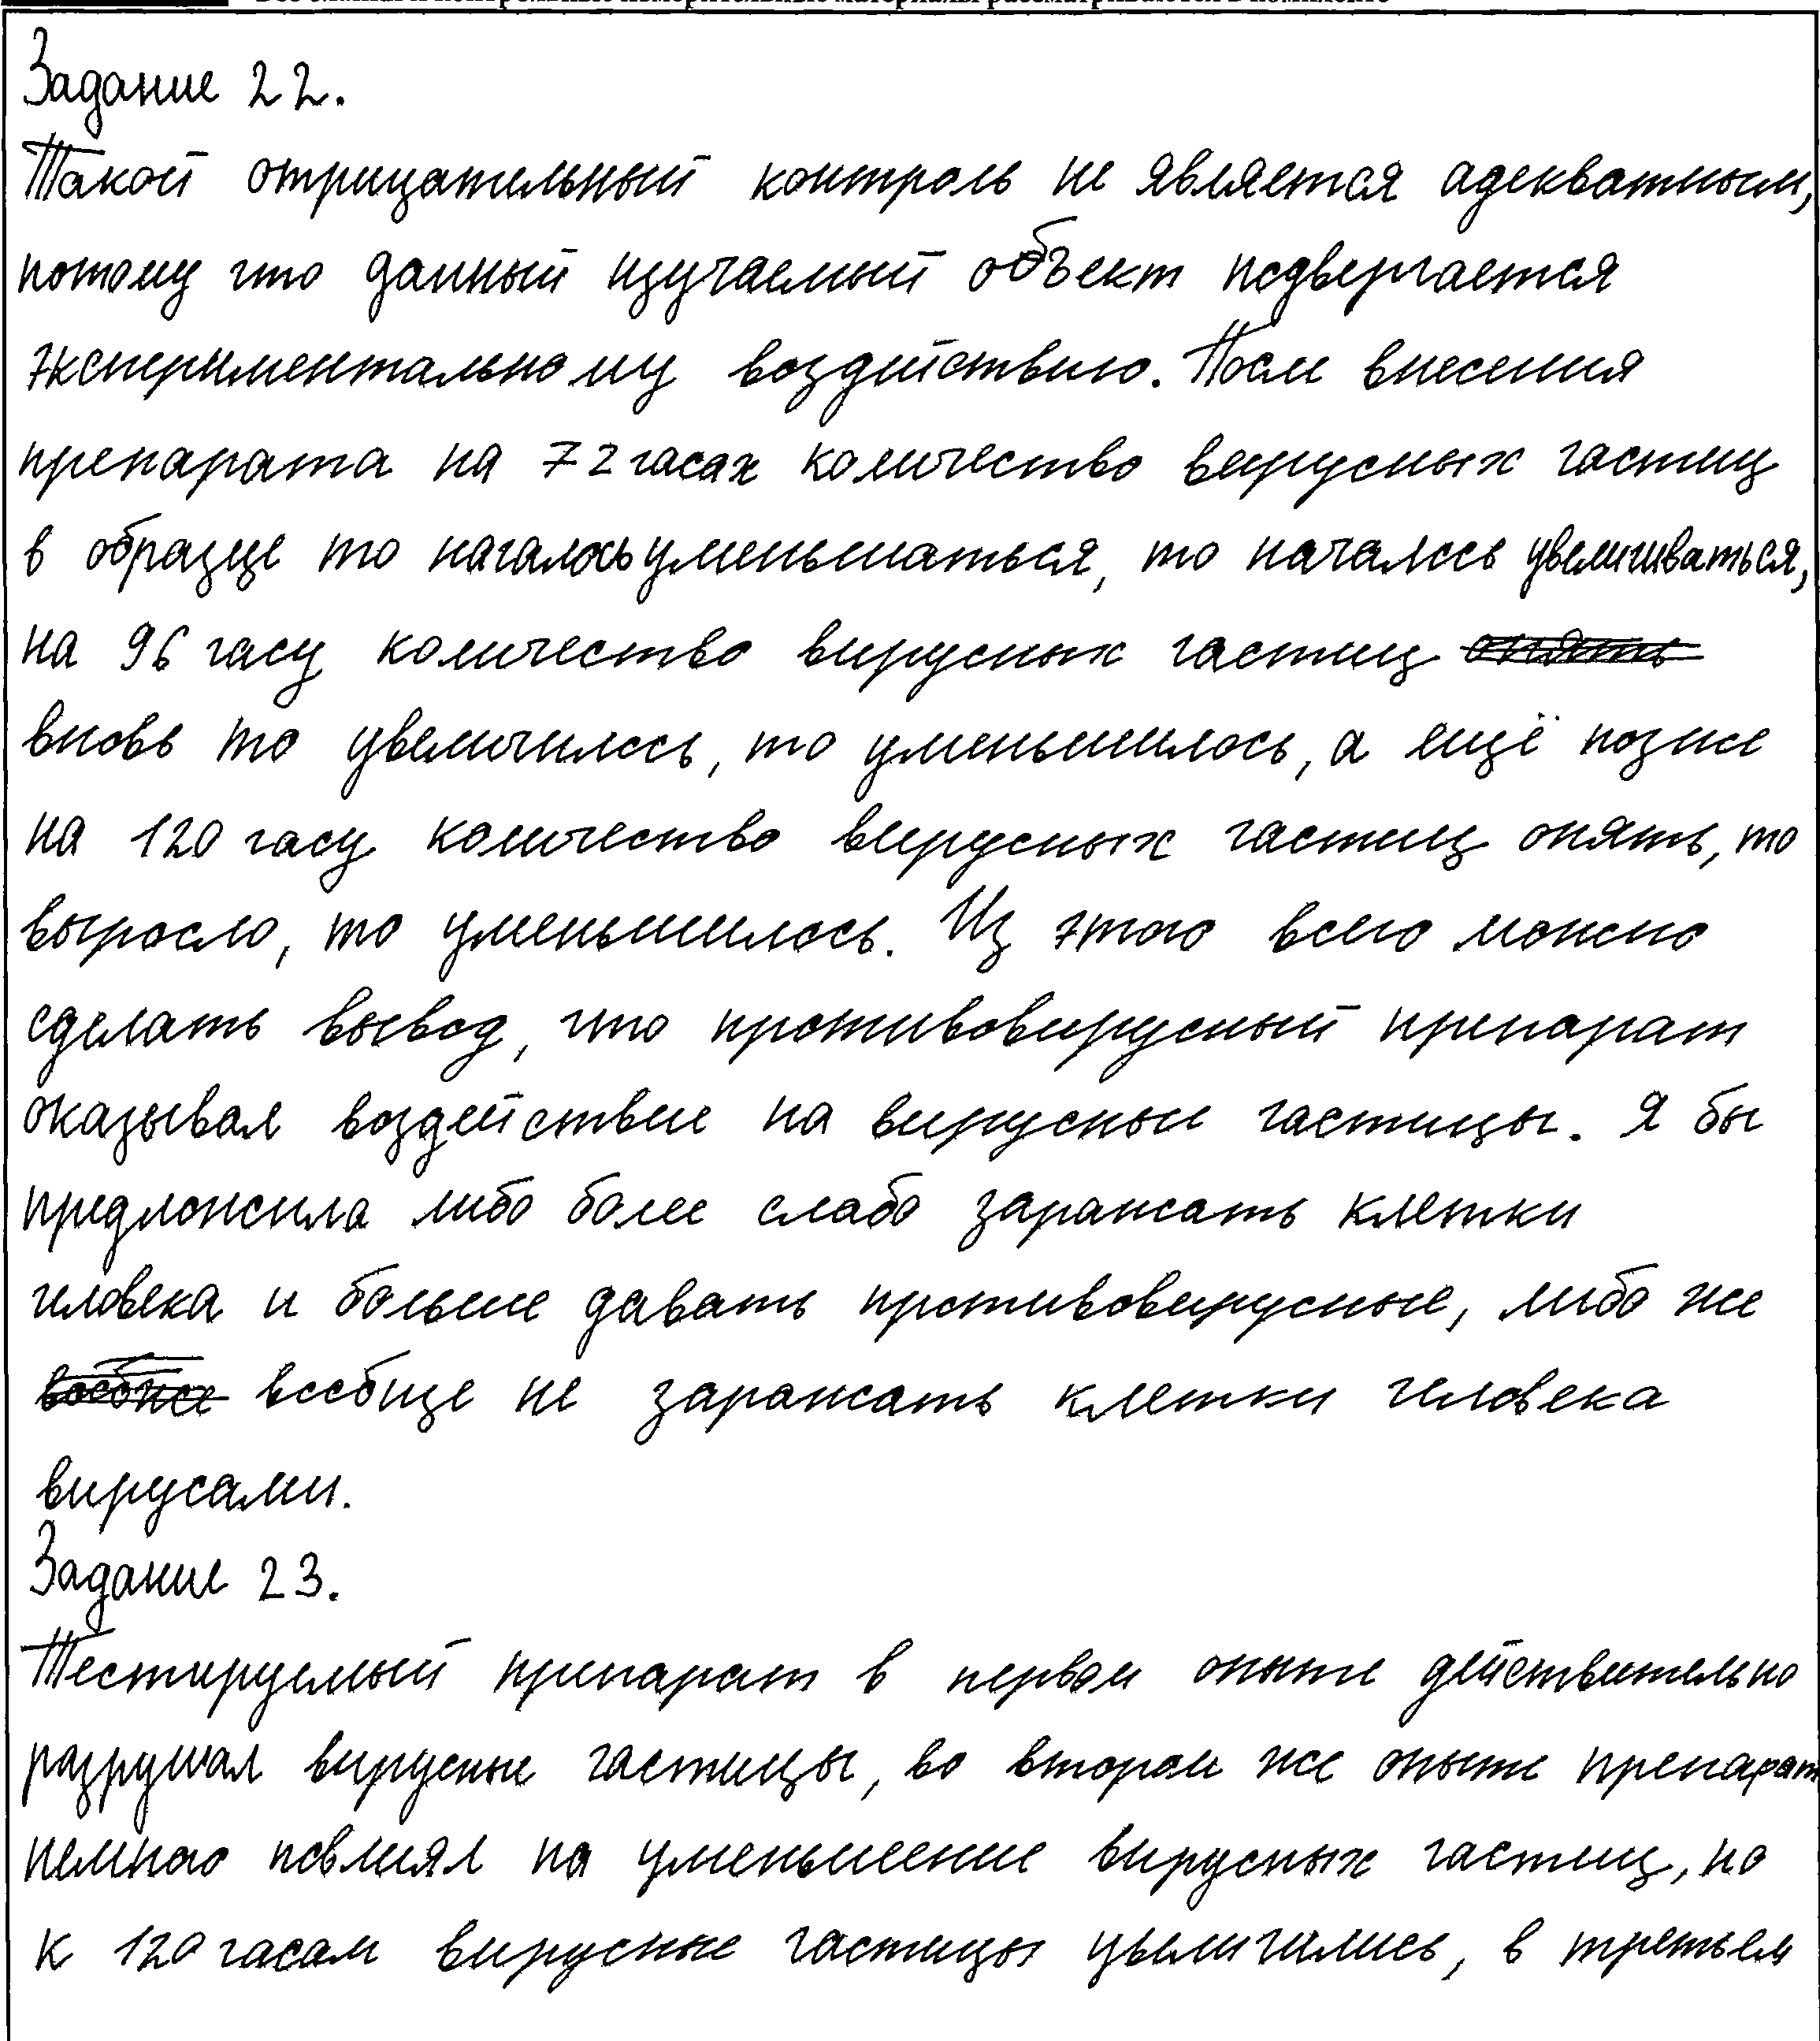 Все бланки и контрольные измерительные материалы рассматриваются в комплекте
Задание 22.
Такой отрицательный контроль не является адекватным,
потому что данный изучаемый объект подвергается
экспериментальному воздействию. После внесения
препарата на 72 часах количество вирусных частиц
в образце то началось уменьшаться, то началось увеличиваться,
на 96 часу количество вирусных частиц опять
вновь то увеличилось, то уменьшилось, а ещё позже
на 120 часу количество вирусных частиц опять, то
выросло, то уменьшилось. Из этого всего можно
сделать вывод, что противовирусный препарат
оказывал воздействие на вирусные частицы. Я бы
предложила либо более слабо заражать клетки
человека и больше давать противовирусные, либо же
вообще не заражать клетки человека
вирусами.
Задание 23.
Тестируемый препарат в первом опыте действительно
разрушал вирусные частицы, во втором же опыте препарат
немного повлиял на уменьшение вирусных частиц, но
к 120 часам вирусные частицы увеличились, в третьем